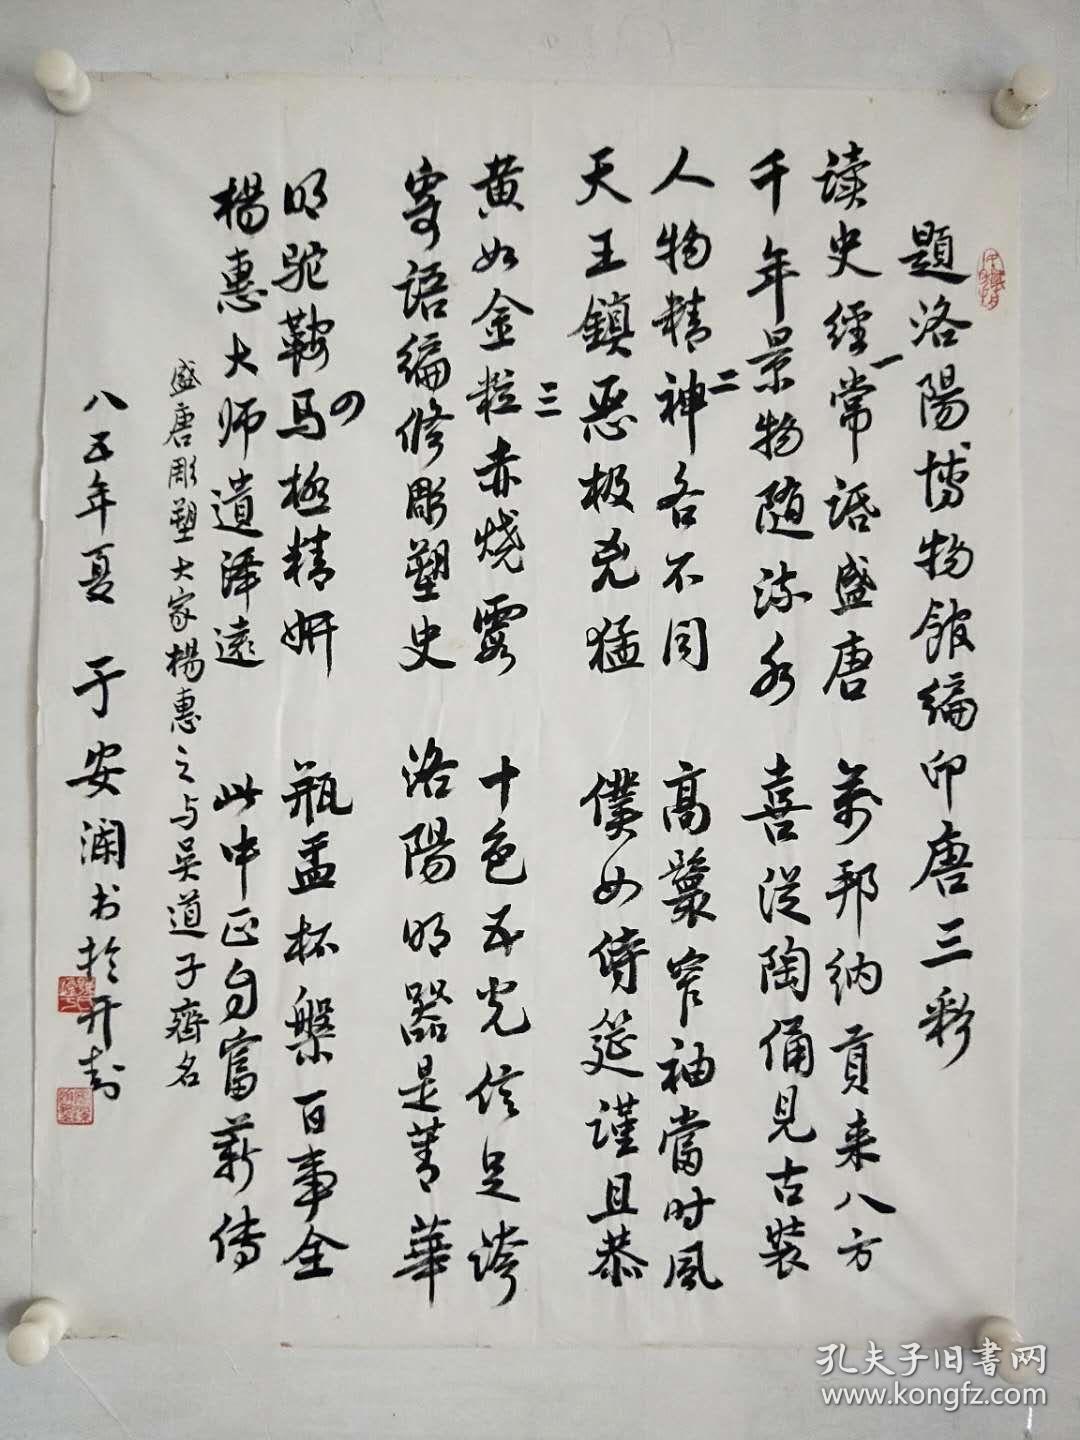 題洛陽博物館編印唐三彩
一
读史經常話盛唐 萬邦纳貢来八方
千年景物随流水 喜從陶俑見古裝
二
人物精神各不同 高鬟窄袖當时風
天王鎮惡极兇猛 僕女侍筵謹且恭
三
黄如金粒赤燒霞 十色五光信足誇
寄語编修彫塑史 洛陽明器是菁華
四
明驼鞍马極精妍 瓶盂杯槃百事全
楊惠大师遺澤遠 此中正自富薪传
盛唐彫塑大家楊惠之与吴道子齊名
八五年夏 于安澜书於开封
孔夫子旧書网
www.kongfz.com